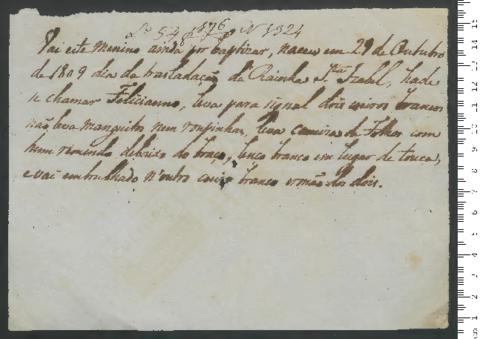 Lº 54 f 176 Nº 1324
Vai este menino ainda por baptizar, naceu em 29 de Outubro
de 1809 dia da trasladação da Rainha Sta Izabel, hade
se chamar Felicianno, leva para signal dois coeiros brancos
não leva manguitos nem roupinhas, leva camiza de folhos com
hum remendo debaixo do braço, lenço branco em lugar de touca,
e vai embrulhado n'outro coeiro branco irmão dos dois.